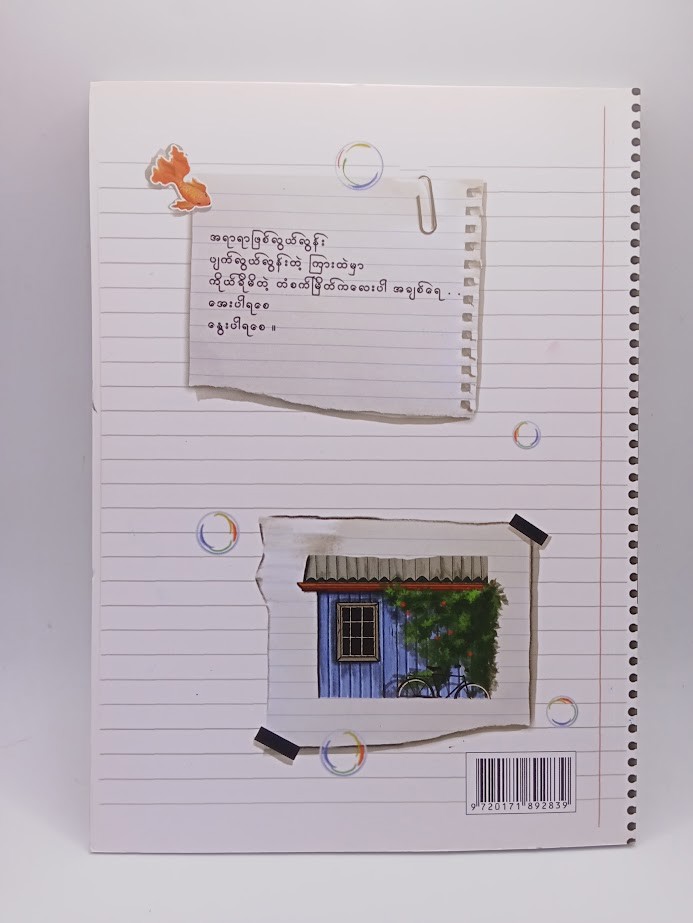 အရာရာဖြစ်လွယ်လွန်း
ပျက်လွယ်လွန်းတဲ့ ကြားထဲမှာ
ကိုယ်ခိုမိတဲ့ တံစက်မြိတ်ကလေးပါ အချစ်ရေ . .
အေးပါရစေ
နွေးပါရစေ ။
9 720171 892839